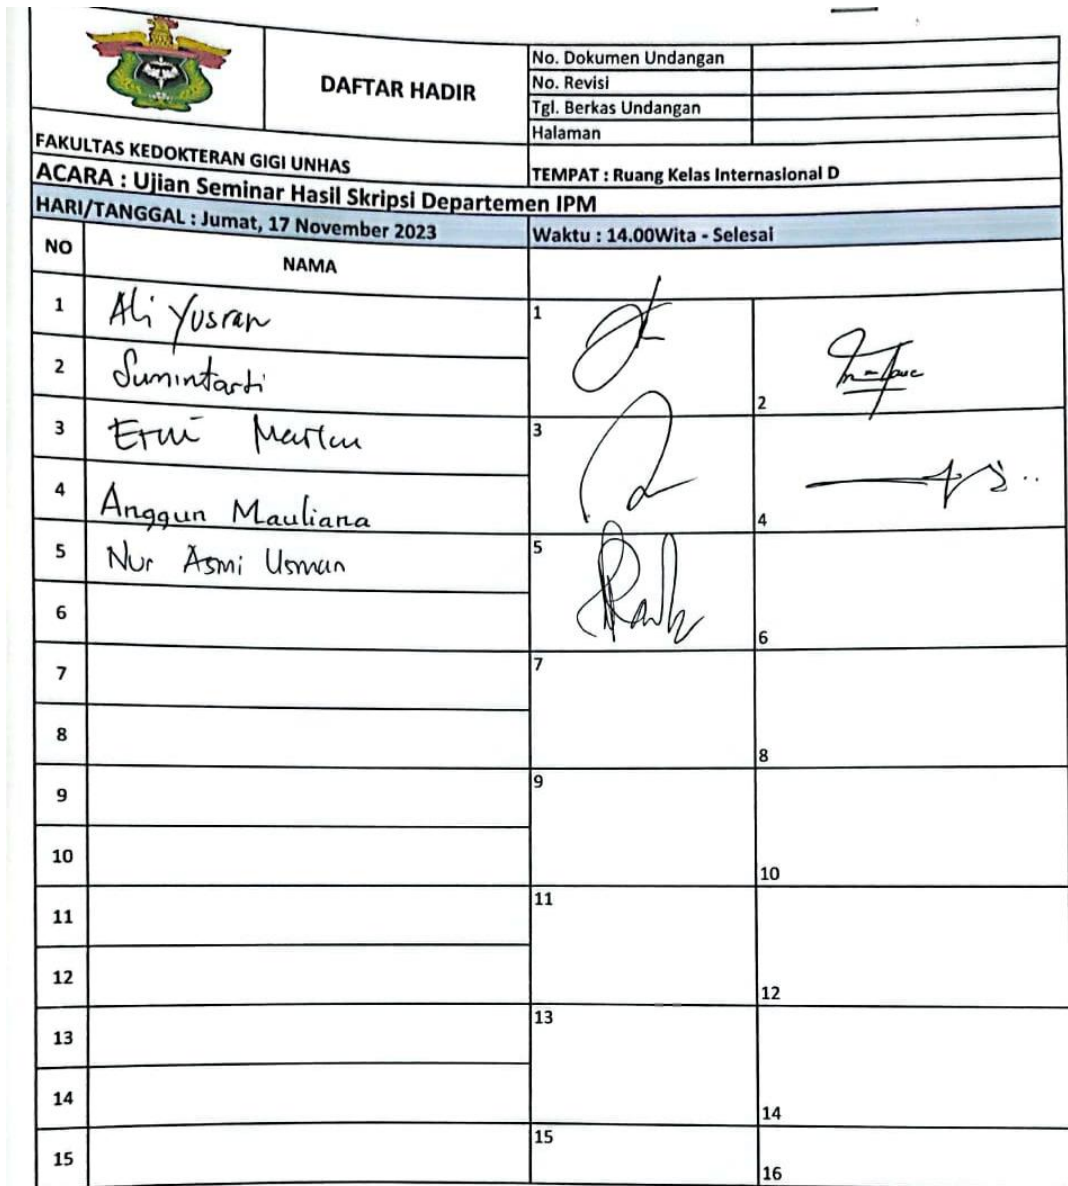 DAFTAR HADIR
No. Dokumen Undangan
No. Revisi
Tgl. Berkas Undangan
Halaman
FAKULTAS KEDOKTERAN GIGI UNHAS
TEMPAT : Ruang Kelas Internasional D
ACARA : Ujian Seminar Hasil Skripsi Departemen IPM
HARI/TANGGAL : Jumat, 17 November 2023
Waktu : 14.00Wita - Selesai
NO NAMA
1 Ali Yusran 1
2 Sumintarti 2
3 Erni Marlin 3
4 Anggun Mauliana 4
5 Nur Asmi Usman 5
6 6
7 7
8 8
9 9
10 10
11 11
12 12
13 13
14 14
15 15
16